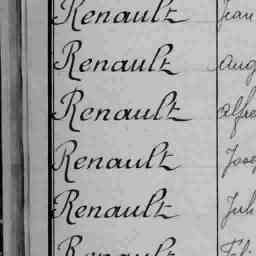 Renault Jean
Renault Aug
Renault Alfre
Renault Jose
Renault Jul
Renault Fél